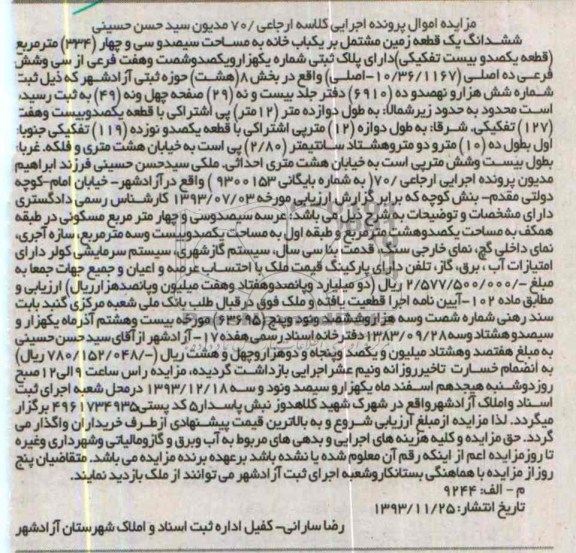 مزایده اموال پرونده اجرایی کلاسه ارجاعی /۷۰ مدیون سید حسن حسینی
ششدانگ یک قطعه زمین مشتمل بر یکباب خانه به مساحت سیصدو سی و چهار (۳۳۴) مترمربع
(قطعه یکصدو بیست تفکیکی)دارای پلاک ثبتی شماره یکهزارویکصدوشصت وهفت فرعی از سی وشش
فرعی ده اصلی (۱۰/۳۶/۱۱۶۷-اصلی) واقع در بخش ۸(هشت) حوزه ثبتی آزادشهر که ذیل ثبت
شماره شش هزارو نهصدو ده (۶۹۱۰) دفتر جلد بیست و نه (۲۹) صفحه چهل ونه (۴۹) به ثبت رسیده
است محدود به حدود زیرشمالا: به طول دوازده متر (۱۲متر) پی اشتراکی با قطعه یکصدوبیست وهفت
(۱۲۷) تفکیکی. شرقا: به طول دوازه (۱۲) مترپی اشتراکی با قطعه یکصدو نوزده (۱۱۹) تفکیکی جنوبا:
اول بطول ده (۱۰) مترو دو متروهشتاد سانتیمتر (۲/۸۰) پی است به خیابان هشت متری و فلکه. غربا:
بطول بیست وشش مترپی است به خیابان هشت متری احداثی. ملکی سیدحسن حسینی فرزند ابراهیم
مدیون پرونده اجرایی ارجاعی /۷۰( به شماره بایگانی ۹۳۰۰۱۵۳ ) واقع درآزادشهر- خیابان امام-کوچه
دولتی مقدم- بنش کوچه که برابر گزارش ارزیابی مورخه ۱۳۹۳/۰۷/۰۳ کارشناس رسمی دادگستری
دارای مشخصات و توضیحات به شرح ذیل می باشد: عرسه سیصدوسی و چهار متر مربع مسکونی در طبقه
همکف به مساحت یکصدوهشت مترمربع و طبقه اول به مساحت یکصدوبیست وسه مترمربع، سازه آجری،
نمای داخلی گچ، نمای خارجی سنگ، قدمت بنا سی سال، سیستم گازشهری، سیستم سرمایشی کولر دارای
امتیازات آب ، برق، گاز، تلفن دارای پارکینگ قیمت ملک با احتساب عرصه و اعیان و جمیع جهات جمعا به
مبلغ -/۲/۵۷۷/۵۰۰/۰۰۰ ریال (دو میلیارد وپانصدوهفتاد وهفت میلیون وپانصدهزارریال) ارزیابی و
مطابق ماده ۱۰۲-آیین نامه اجرا قطعیت یافته و ملک فوق در قبال طلب بانک ملی شعبه مرکزی گنبد بابت
سند رهنی شماره شصت وسه هزاروششصد ونود وپنج (۶۳۶۹۵) مورخه بیست وهشتم آذرماه یکهزار و
سیصدو هشتاد وسه۱۳۸۳/۰۹/۲۸ دفترخانه اسناد رسمی هفده ۱۷- آزادشهر ازآقای سید حسن حسینی
به مبلغ هفتصد وهشتاد میلیون و یکصد وپنجاه و دوهزاروچهل و هشت ریال (-/۷۸۰/۱۵۲/۰۴۸ ریال)
به انضمام خسارت تاخیرروزانه ونیم عشراجرایی بازداشت گردیده، مزایده راس ساعت ۹ الی۱۲صبح
روزدوشنبه هیجدهم اسفند ماه یکهزارو سیصد ونود و سه ۱۳۹۳/۱۲/۱۸ درمحل شعبه اجرای ثبت
اسناد واملاک آزادشهرواقع در شهرک شهید کلاهدوز نبش پاسدار۵ کد پستی۴۹۶۱۷۳۴۹۳۵ برگزار
میگردد. لذا مزایده ازمبلغ ارزیابی شروع و به بالاترین قیمت پیشنهادی ازطرف خریداران واگذار می
گردد. حق مزایده و کلیه هزینه های اجرایی و بدهی های مربوط به آب وبرق و گازومالیاتی وشهرداری وغیره
تا روزمزایده اعم از اینکه رقم آن معلوم شده یا نشده باشد برعهده برنده مزایده می باشد. متقاضیان پنج
روز از مزایده با هماهنگی بستانکاروشعبه اجرای ثبت آزادشهر می توانند از ملک بازدید نمایند.
م - الف: ۹۲۴۴
تاریخ انتشار: ۱۳۹۳/۱۱/۲۵
رضا سارانی- کفیل اداره ثبت اسناد و املاک شهرستان آزادشهر